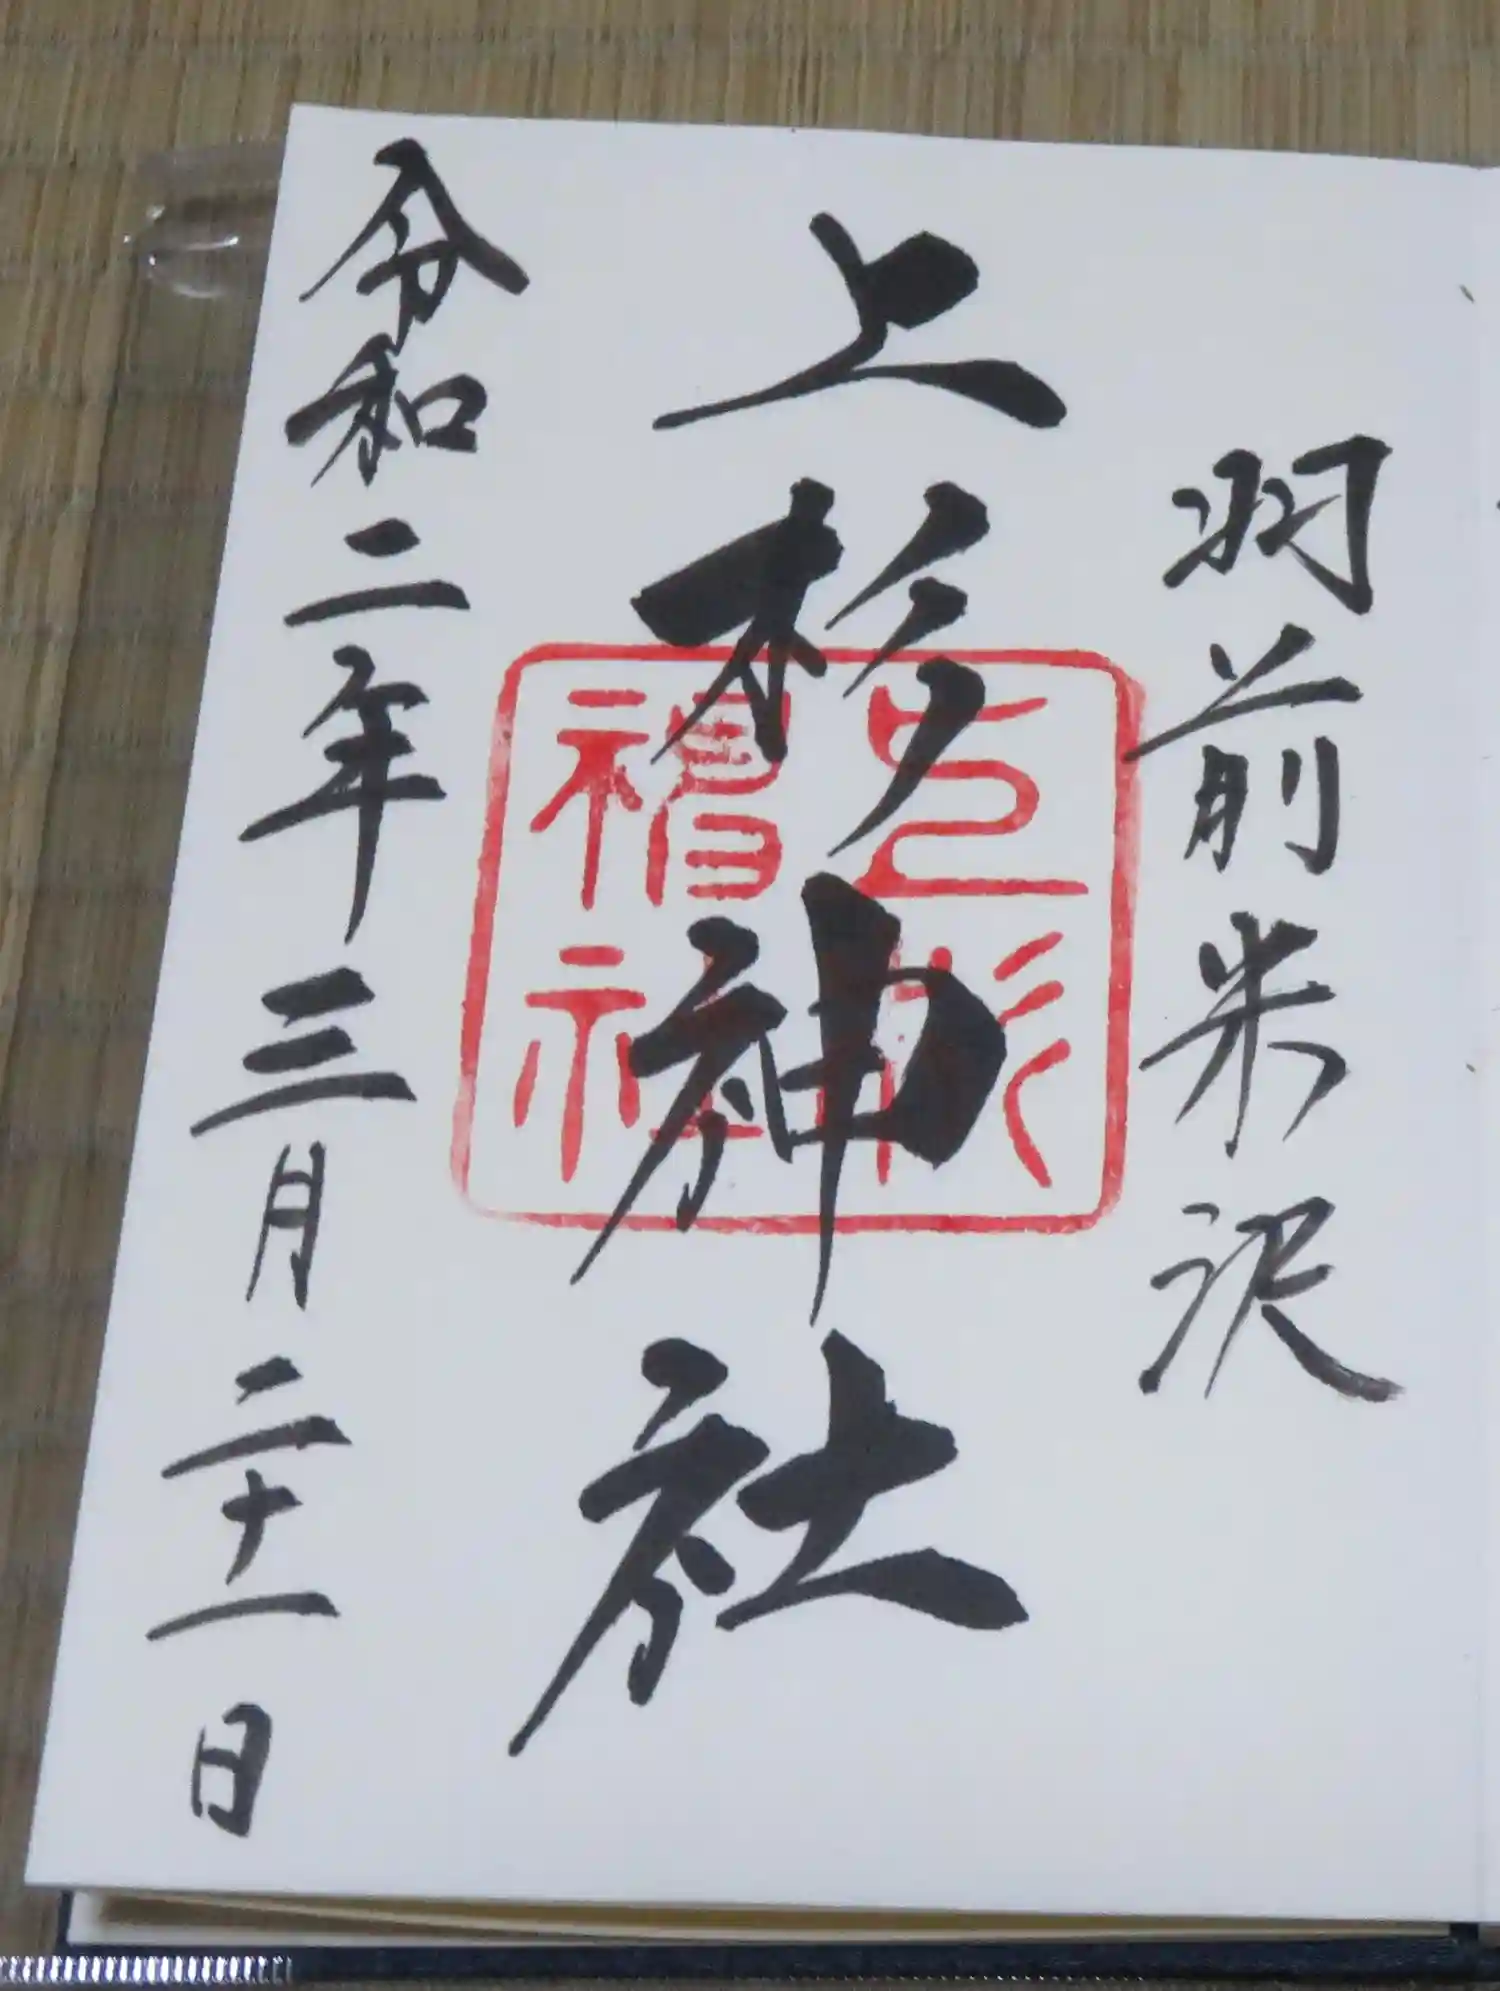 羽前米沢
上杉神社
上杉神社
令和二年三月二十一日